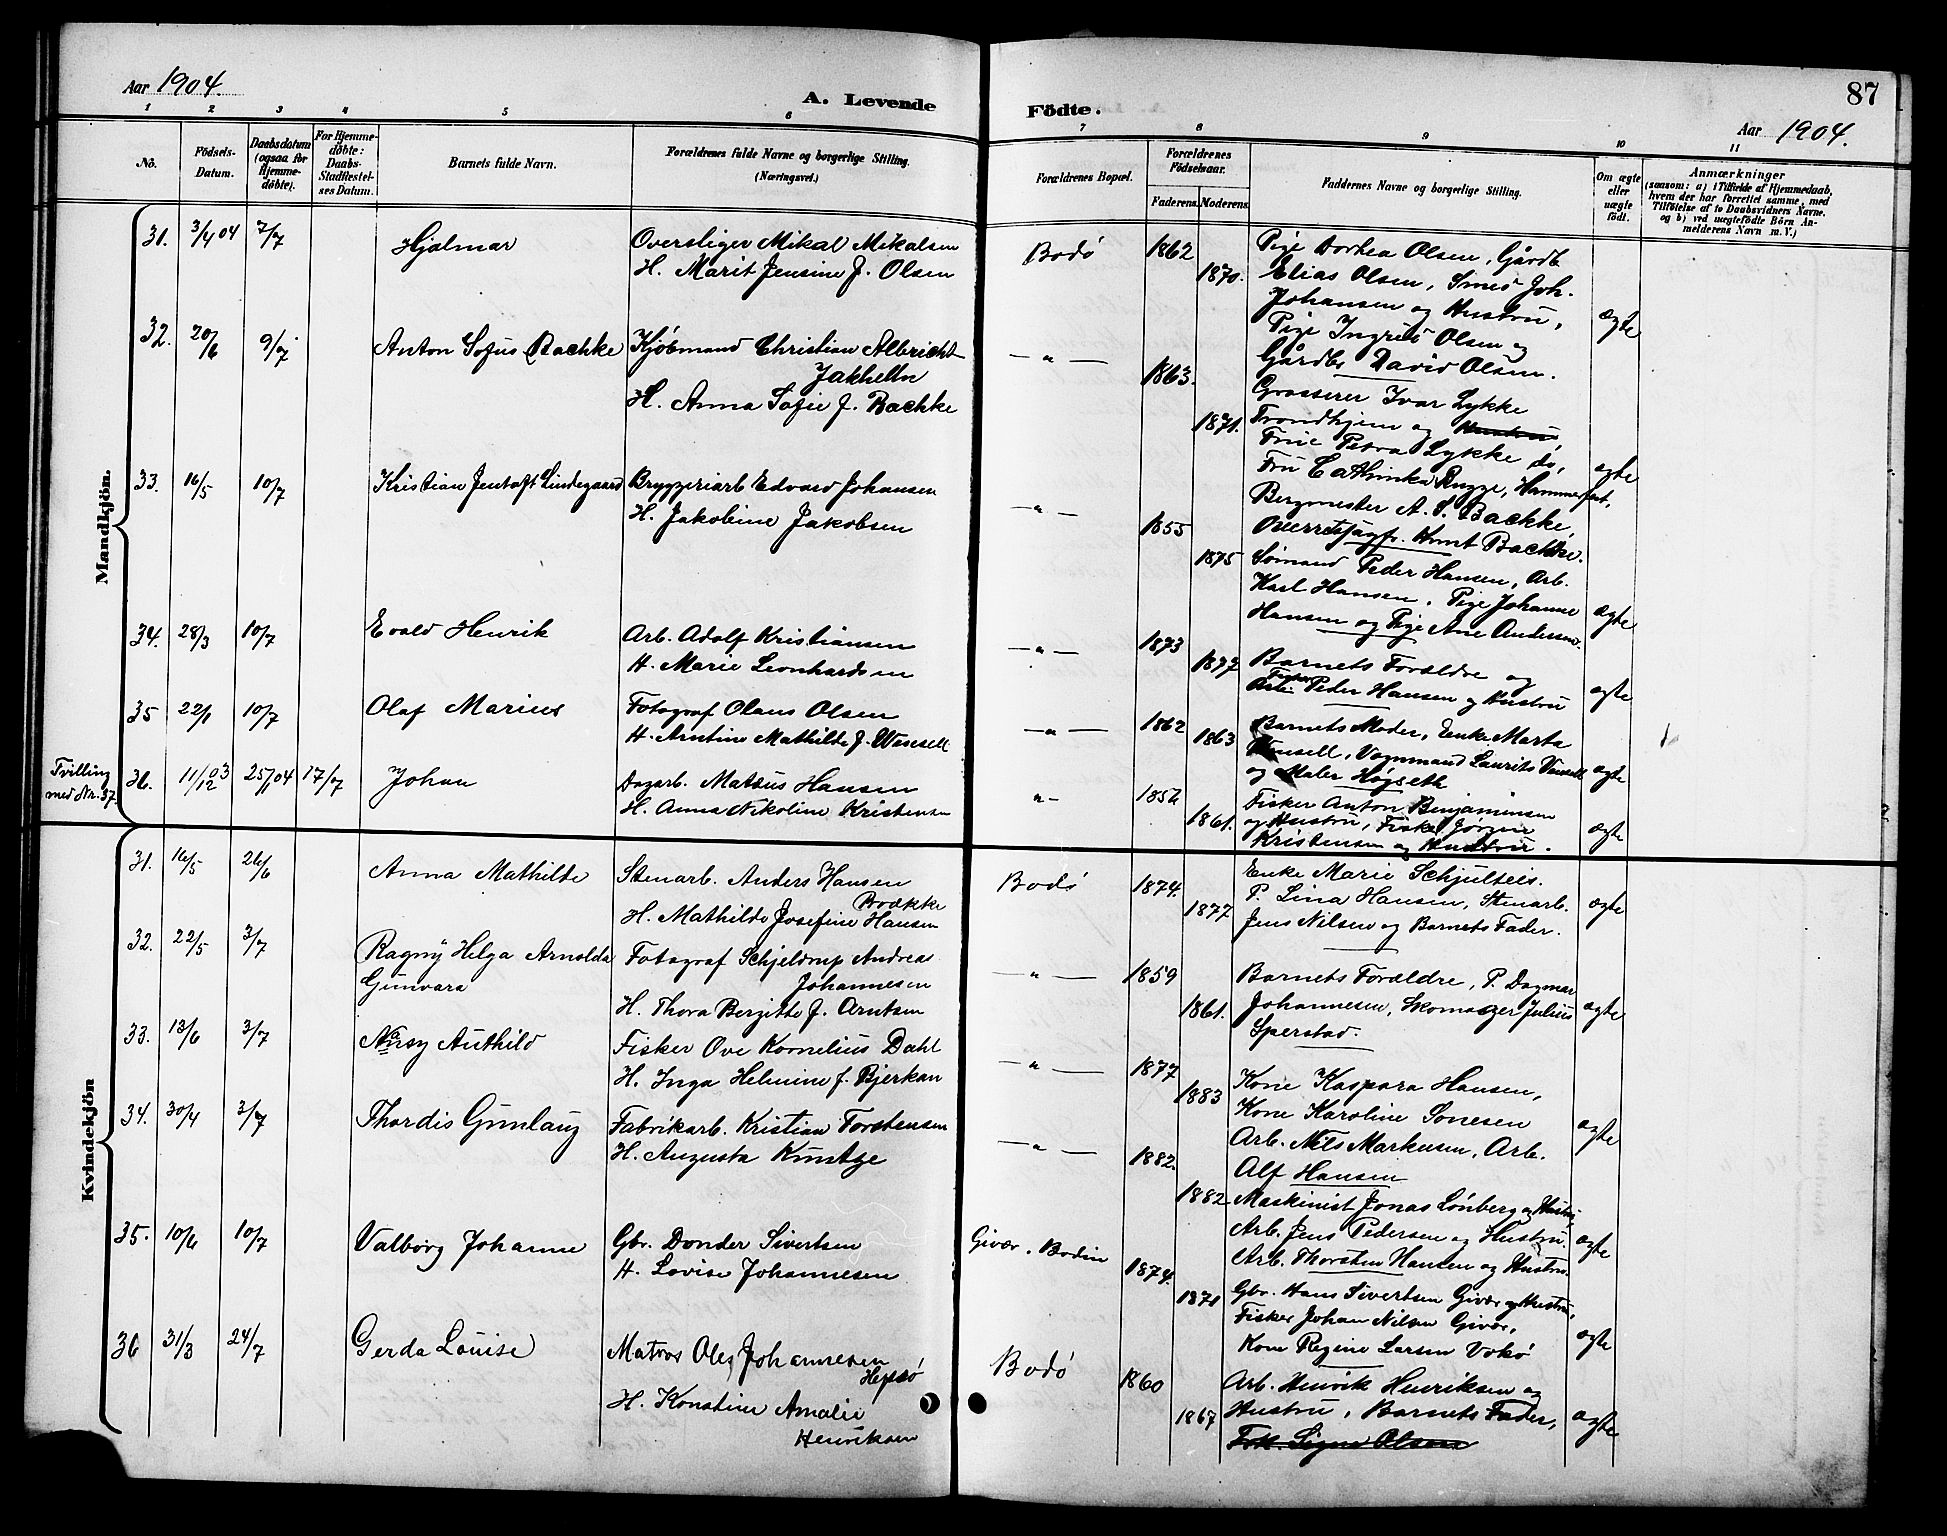 Aar 1904.
A. Levende
1 2 3 4 5 6
No.
Födsels-
Datum.
Daabsdatum
(ogsaa for
Hjemme-
døbte).
For Hjemme-
døbte:
Daabs-
Stadfestel-
ses Datum.
Barnets fulde Navn.
Forældrenes fulde Navne og borgerlige Stilling.
(Næringsvei.)
Mandkjön.
31. 3/4 04 7/7 Hjalmar Oversliger Mikal Mikalsen
H. Marit Jensine f. Olsen
32. 20/6 9/7 Anton Sofus Bachke Kjöbmand Christian Albricht
Jakhelln
H. Anna Sofie f. Bachke
33. 16/5 10/7 Kristian Jentoft Lindegaard Bryggeriarb Edvard Johansen
H. Jakobine Jakobsen
34. 28/3 10/7 Evald Henrik Arb. Adolf Kristiansen
H. Marie Leonhardsen
35 22/1 10/7 Olaf Marius Fotograf Olaus Olsen
H. Arntine Mathilde f. Wensell
Tvilling
med Nr. 37.
36. 11/12 03 25/1 04 17/7 Johan Dagarb. Matsus Hansen
H. Anna Nikoline Kristensen
Kvindekjön
31. 16/5 26/6 Anna Mathilde Stenarb. Anders Hansen
Brække
H. Mathilde Josefine Hansen
32. 22/5 3/7 Ragny Helga Arnolda Fotograf Schjeldrup Andreas
Gunvara Johannesen
H. Thora Bergitte f. Arntsen
33. 13/6 3/7 Nansy Authild Fisker Ove Kornelius Dahl
H. Inga Helmine f. Bjerkan
34. 30/4 3/7 Thordis Gunlaug Fabrikarb. Kristian Torstensen
H. Augusta Kuntze
35. 10/6 10/7 Valborg Johanne Gbr. Donder Sivertsen
H. Lovise Johannesen
36 31/3 24/7 Gerda Louise Matros Ole Johannesen
Hepsø
H. Konstine Amalie
Henriksen
87
Födte.
Aar 1904.
7 8 9 10 11
Forældrenes Bopæl.
Forældrenes
Födselsaar.
Faderens. Moderens.
Faddernes Navne og borgerlige Stilling.
Om ægte
eller
uægte
födt.
Anmærkninger
(saasom: a) i Tilfælde af Hjemmedaab,
hvem der har forrettet samme, med
Tilföielse af to Daabsvidners Navne.
og b) ved uægtefödte Börn An-
melderens Navn m. V.)
Bodö 1862 Pige Dorthea Olsen, Gårdb
1870. Elias Olsen, Smed Joh.
Johansen og Hustru, ægte
Pige Ingrid Olsen og
Gårdbr David Olsen.
— " — 1863. Grosserer Ivar Lykke
1871. Trondhjem og Hustru,
Frue Petra Lykke do, ægte
Fru Cathinka Rugge, Hammerfest,
Bergmester A. S. Bachke,
Overretssagfr. Knut Bachke.
— " — 1855
1875 Sømand Peder Hansen, Arb.
Karl Hansen, Pige Johanne
Hansen og Pige Ane Andersen. ægte
— " — 1873
1877 Barnets Forældre og
Fisker Peder Hansen og Hustru ægte
— " — 1862 Barnets Moder, Enke Marta
1863 Wensell, Vognmand Laurits Vensell
og Maler Høgseth ægte
" — 1856 Fisker Anton Benjaminsen
1861. og Hustru, Fisker Jörgen
Kristensen og Hustru. ægte
Bodö 1874. Enke Marie Schjulteis.
1877 P. Lina Hansen, Stenarb.
Jens Nilsen og Barnets Fader. ægte
— " — 1859 Barnets Forældre, P. Dagmar
1861. Johannesen, Skomager Julius
Sperstad. ægte
— " — 1877
1883 Kone Kaspara Hansen,
Kone Karoline Sonesen
Arb. Nils Markusen, Arb.
Alf Hansen ægte
— " — 1882.
1882 Maskinist Jonas Lönberg og Hustru,
Arb. Jens Pedersen og Hustru.
Arb. Thorsten Hansen og Hustru. ægte
Givær. Bodin 1874.
1871 Gbr. Hans Sivertsen Givær og Hustru,
Fisker Johan Nilsen Givær,
Kone Regine Larsen Vokö ægte
Bodö 1860 Arb. Henrik Henriksen og
1867 Hustru, Barnets Fader,
Frk. Signe Olsen ægte